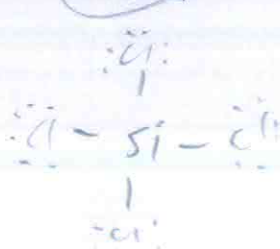 :Cl:
:Cl - Si - Cl:
Cl